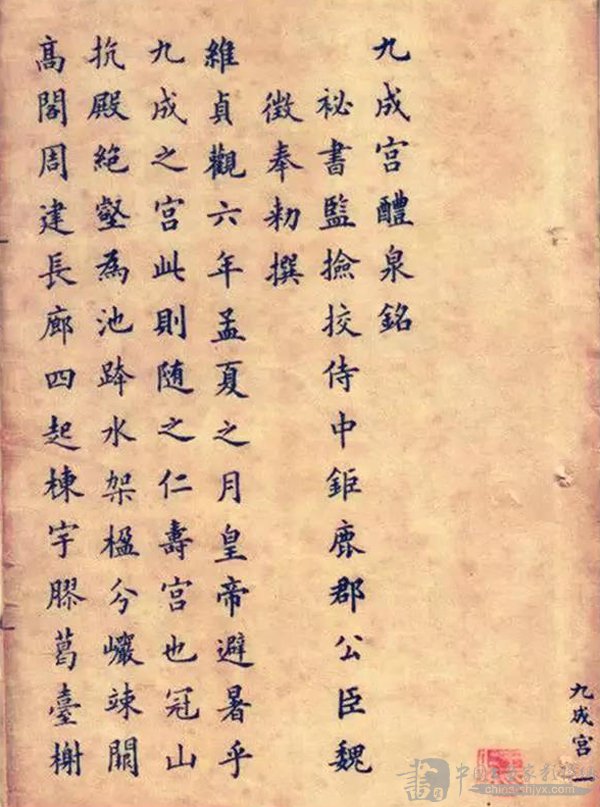 九成宫醴泉銘
祕書監撿挍侍中鉅鹿郡公臣魏
徵奉勑撰
維貞觀六年孟夏之月皇帝避暑乎
九成之宫此則随之仁壽宫也冠山
抗殿絶壑為池跨水架楹分巗竦闕
髙閣周建長廊四起棟宇膠葛臺榭
九成宫一
china-shjyx.com